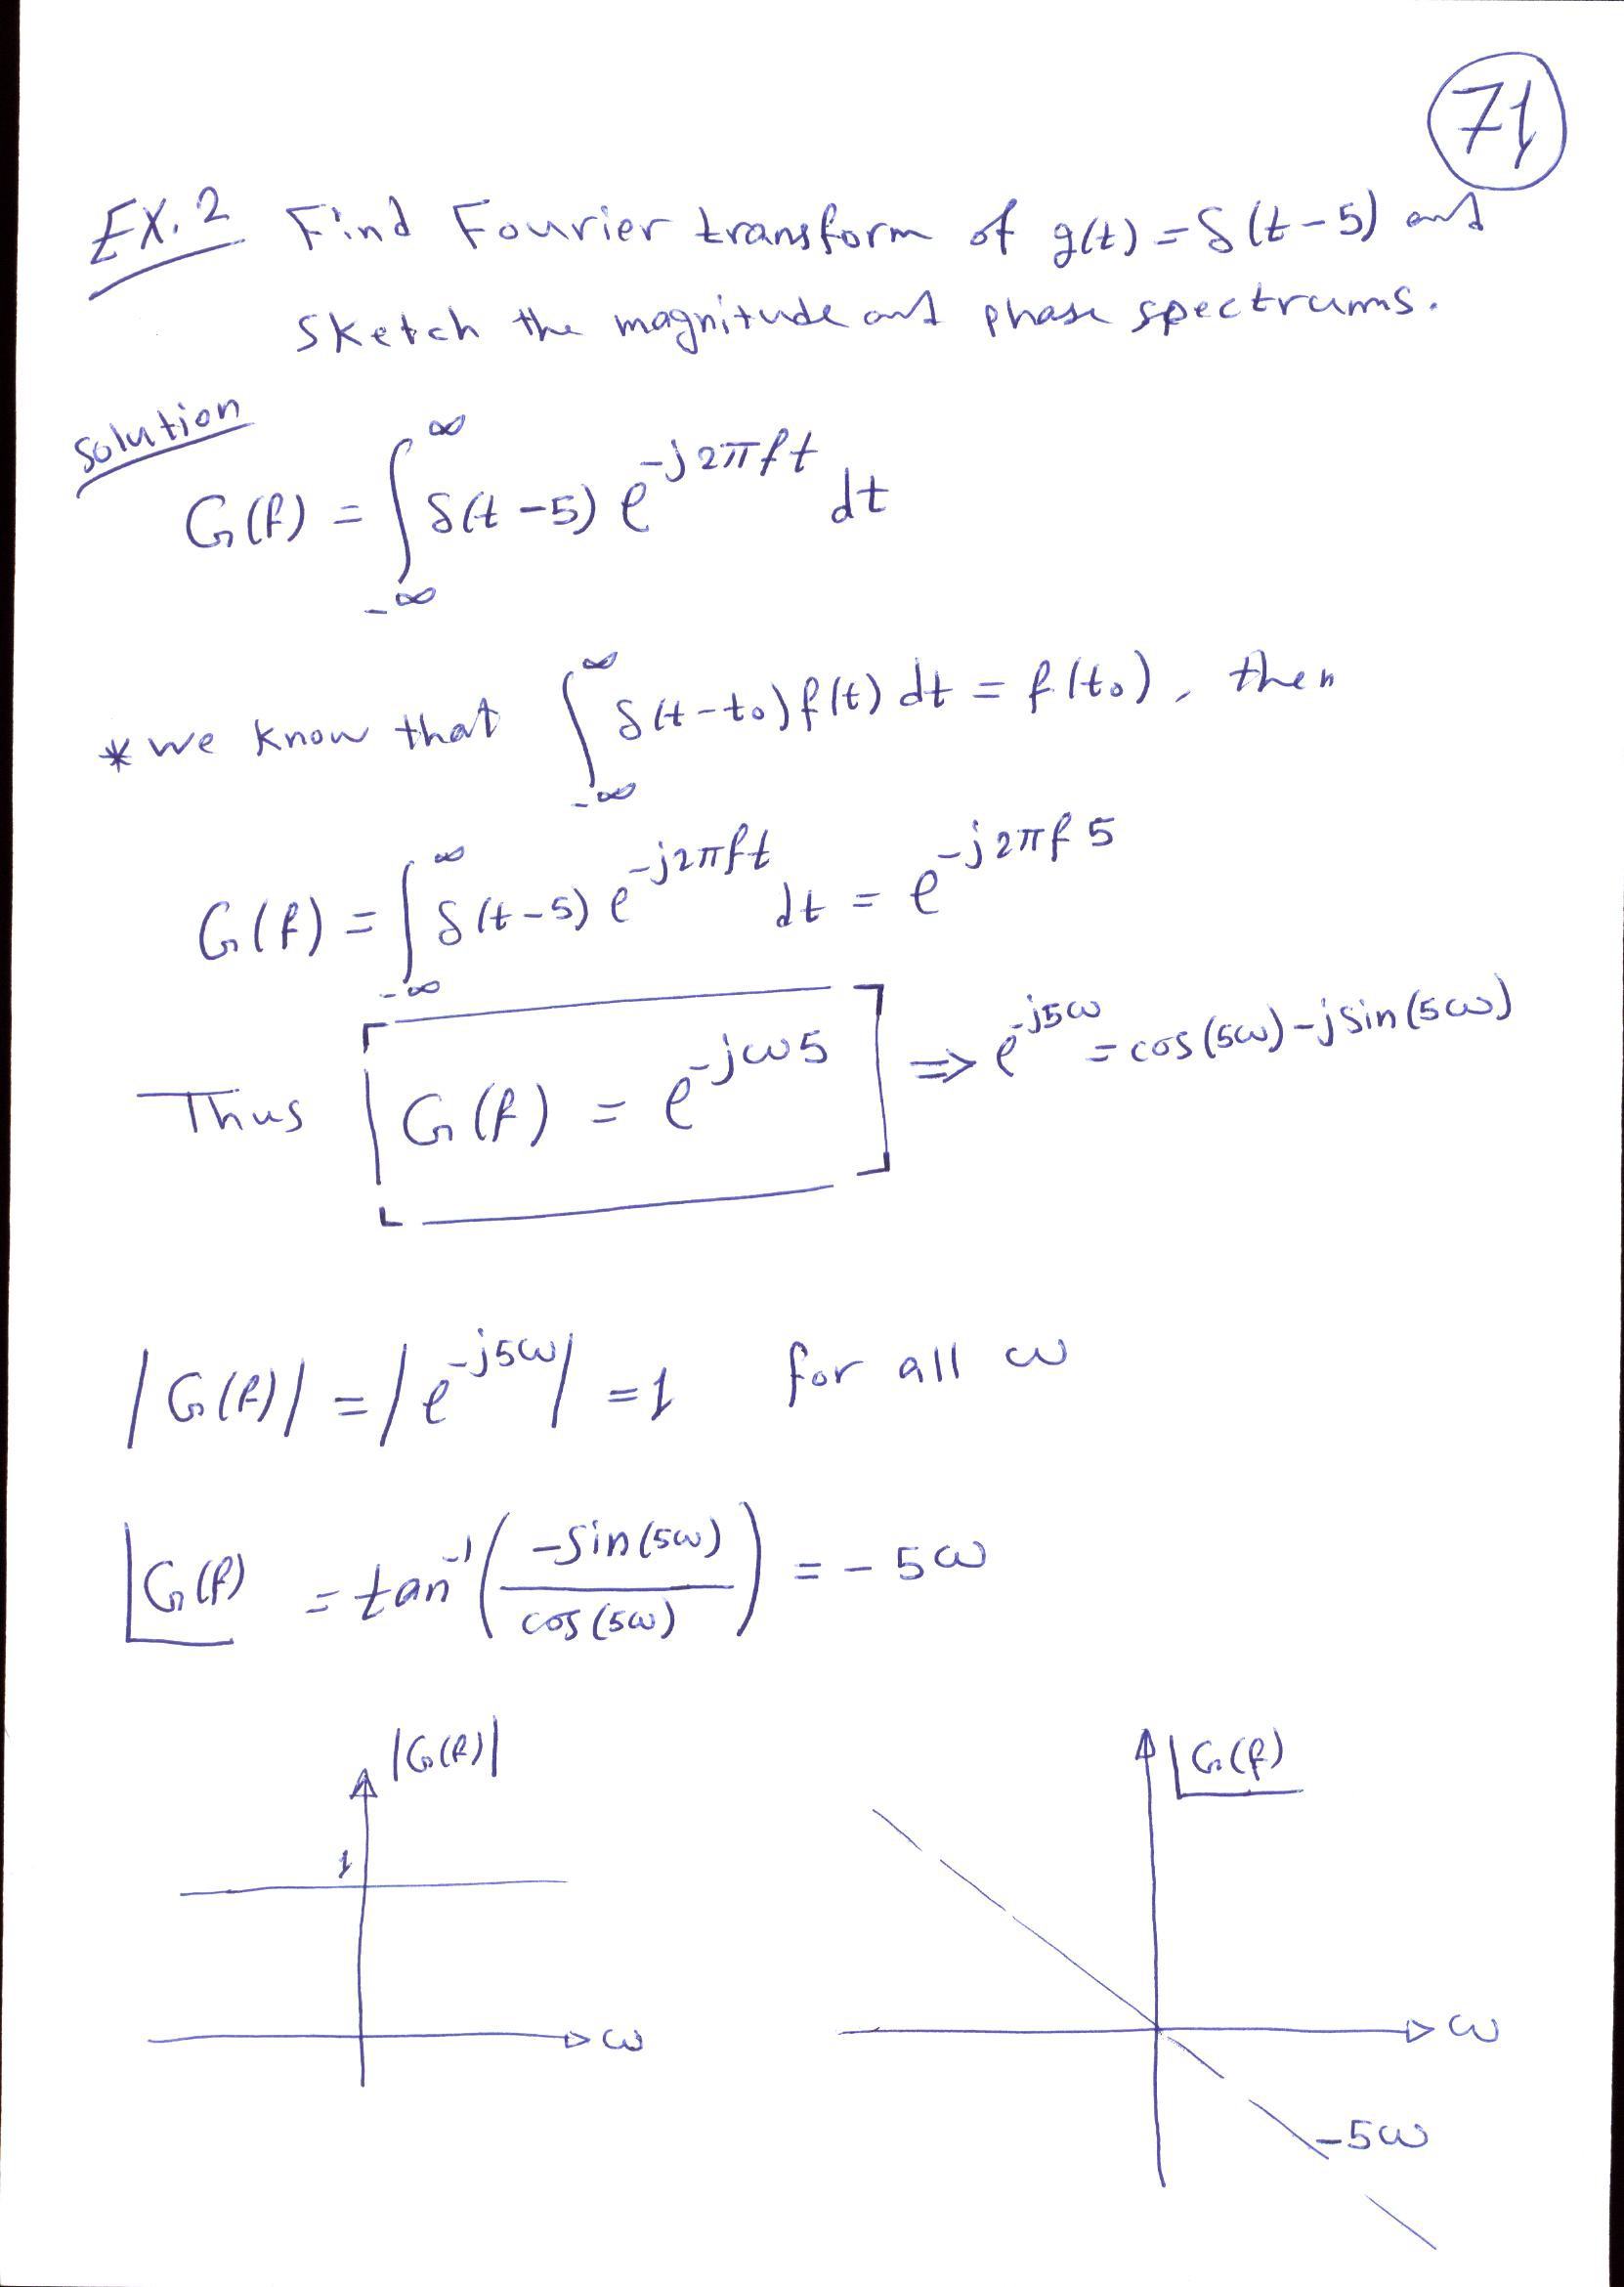 71
EX.2 Find Fourier transform of g(t) = δ(t-5) and
sketch the magnitude and phase spectrums.
solution
G(f) = ∫_{-∞}^{∞} δ(t-5) e^{-j2πft} dt
* we know that ∫_{-∞}^{∞} δ(t-t₀) f(t) dt = f(t₀), then
G(f) = ∫_{-∞}^{∞} δ(t-5) e^{-j2πft} dt = e^{-j2πf5}
Thus G(f) = e^{-jω5} ⇒ e^{-j5ω} = cos(5ω) - j sin(5ω)
|G(f)| = |e^{-j5ω}| = 1 for all ω
∠G(f) = tan^{-1}(-sin(5ω)/cos(5ω)) = -5ω
|G(f)|
1
ω
∠G(f)
ω
-5ω